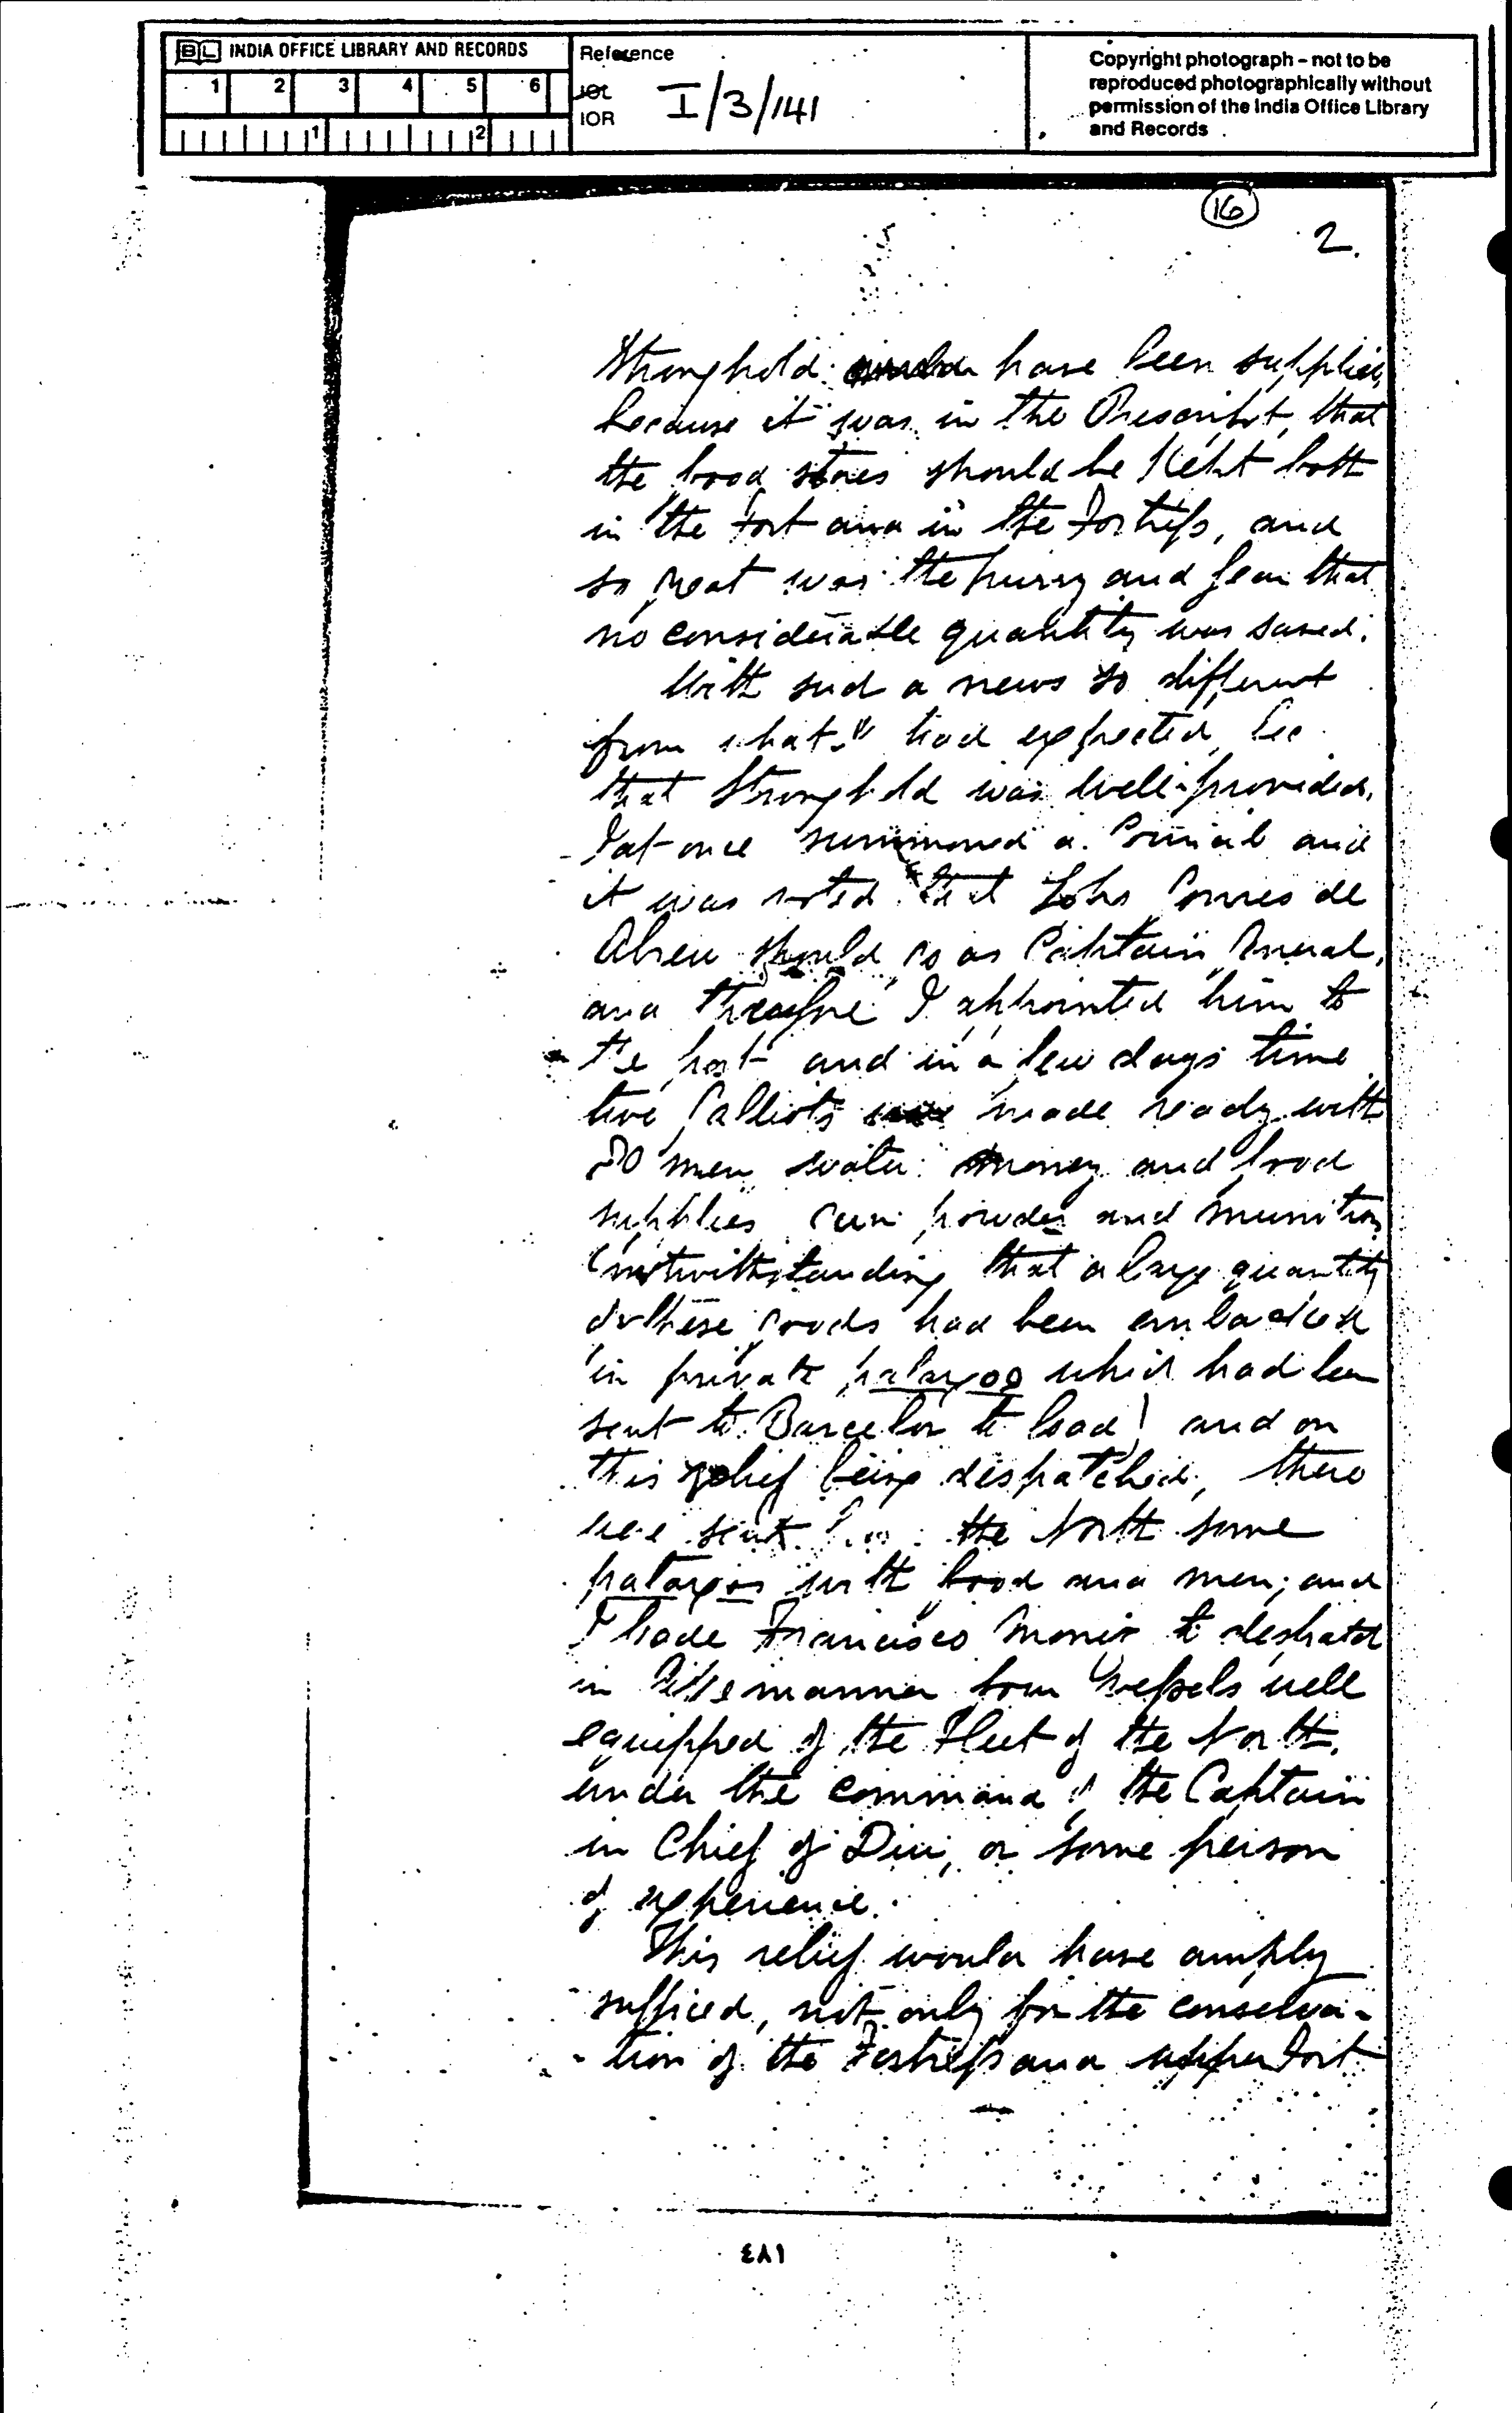 BL INDIA OFFICE LIBRARY AND RECORDS
1 2 3 4 5 6
1 2
Reference
IOL
IOR
I/3/141
Copyright photograph - not to be
reproduced photographically without
permission of the India Office Library
and Records
16
2.
Stronghold have been supplied,
because it was in the Prescript, that
the food stores should be kept both
in the Fort and in the Fortress, and
so great was the hurry and fear that
no considerable quantity was saved.
With such a news so different
from what I had expected,
that Stronghold was well-provided,
I at once summoned a Council and
it was voted that Gomes de
Abreu should go as Captain General,
and therefore I appointed him to
the post and in a few days time
Galliots made ready with
men water money and food
supplies Gun powder and munitions
(notwithstanding that a large quantity
of these goods had been embarked
in private pataxos which had been
sent to Barcelor to load) and on
this relief being dispatched, there
were sent the North some
pataxos with food and men; and
I bade Francisco Moniz to despatch
in like manner four vessels well
equipped of the Fleet of the North,
under the command of the Captain
in Chief of Diu, or some person
of experience.
This relief would have amply
sufficed, not only for the conserva-
-tion of the Fortress and upper Fort
٤٨١